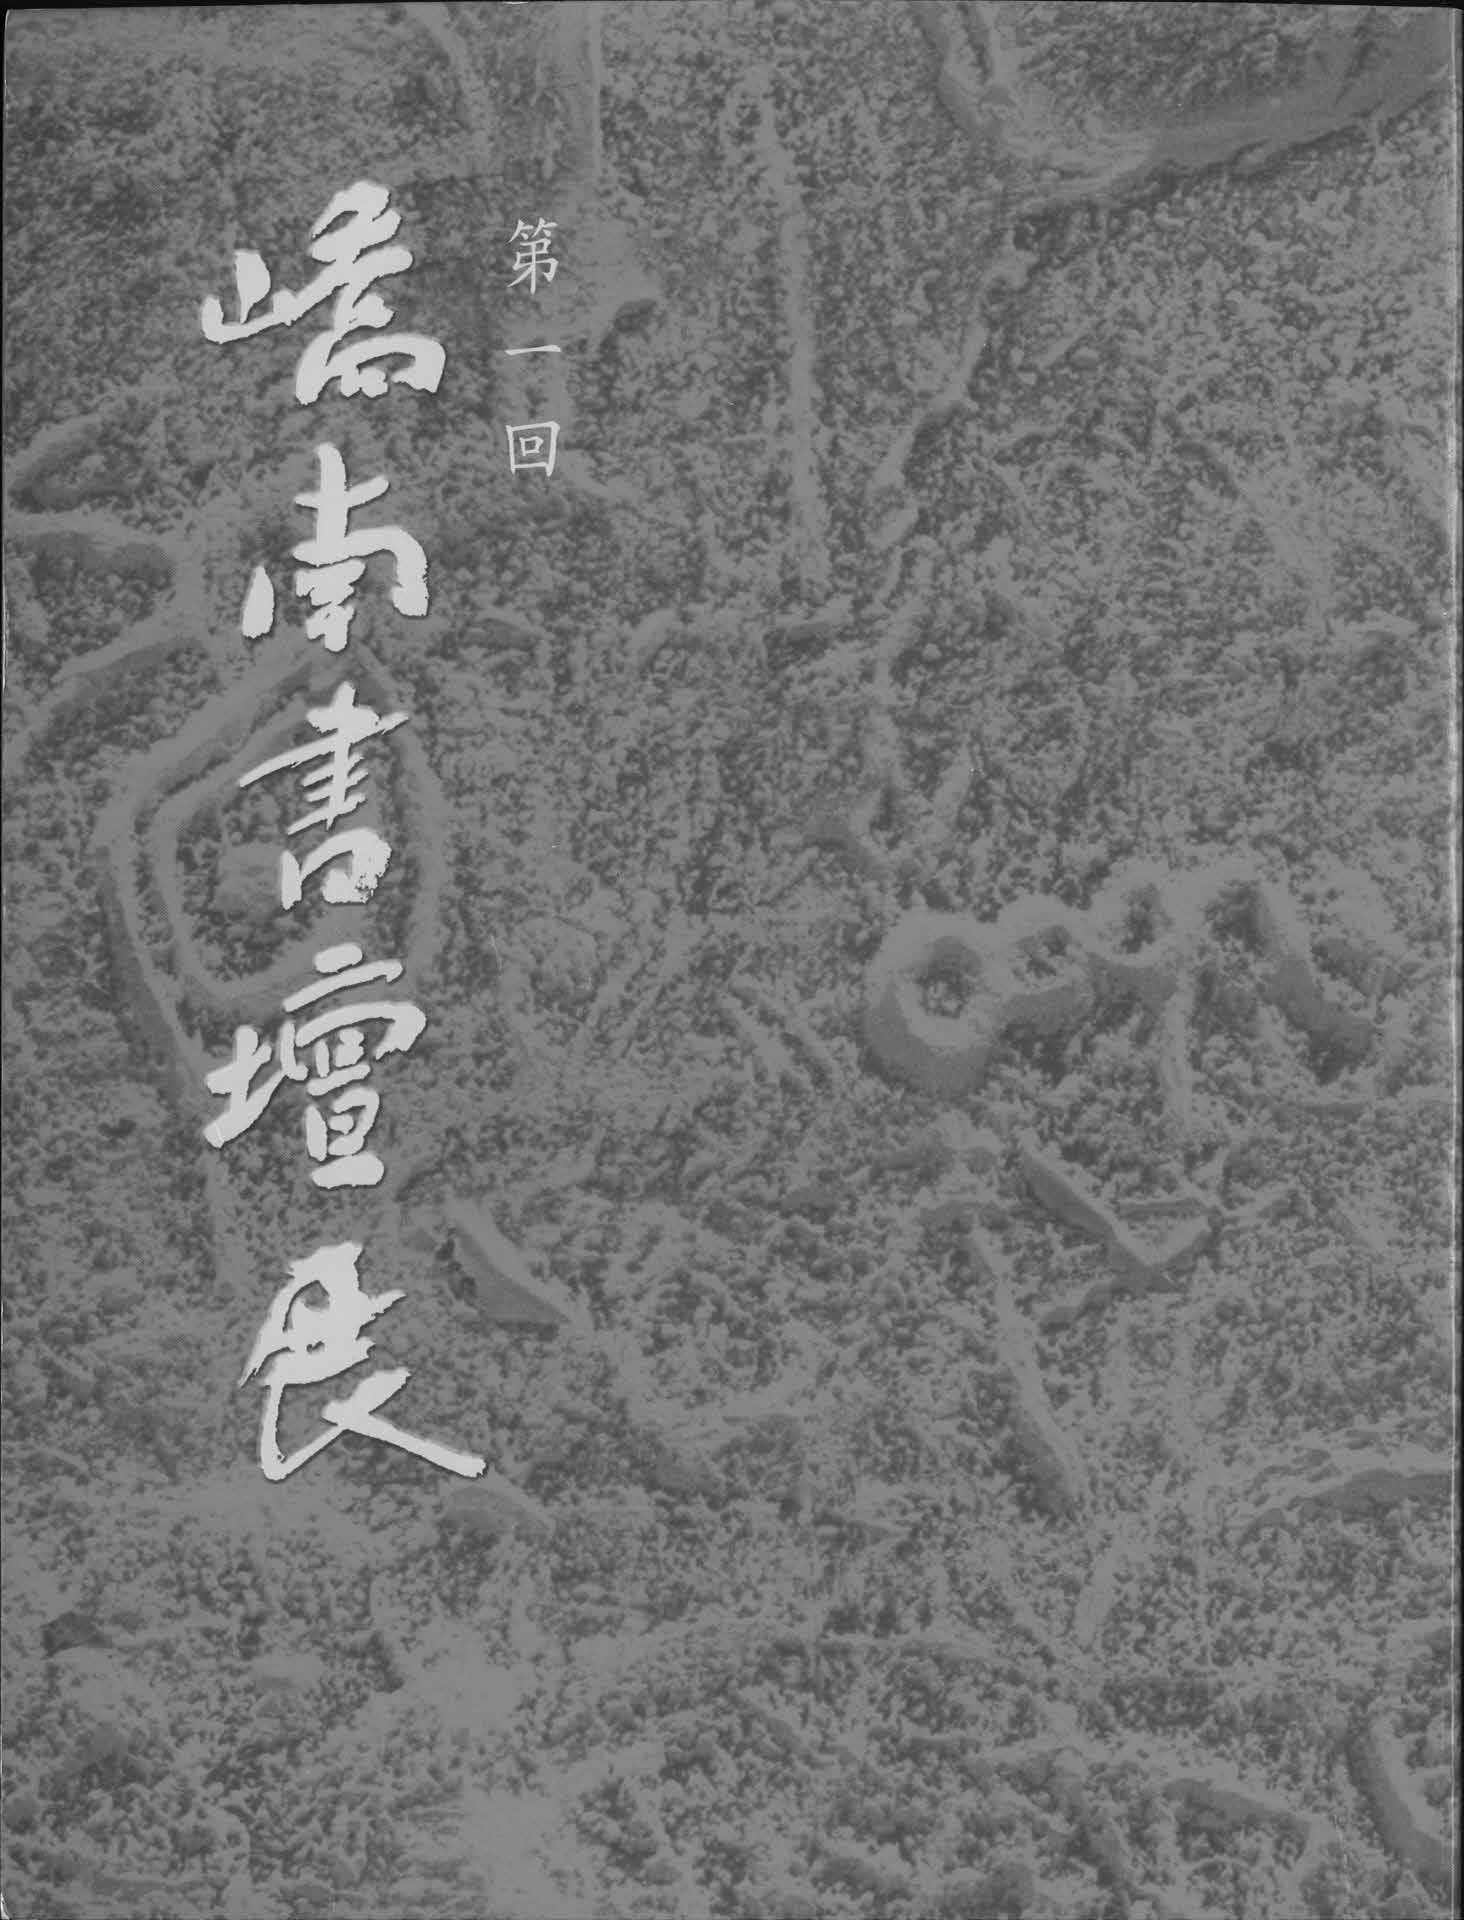 第一回
嶠南書壇展